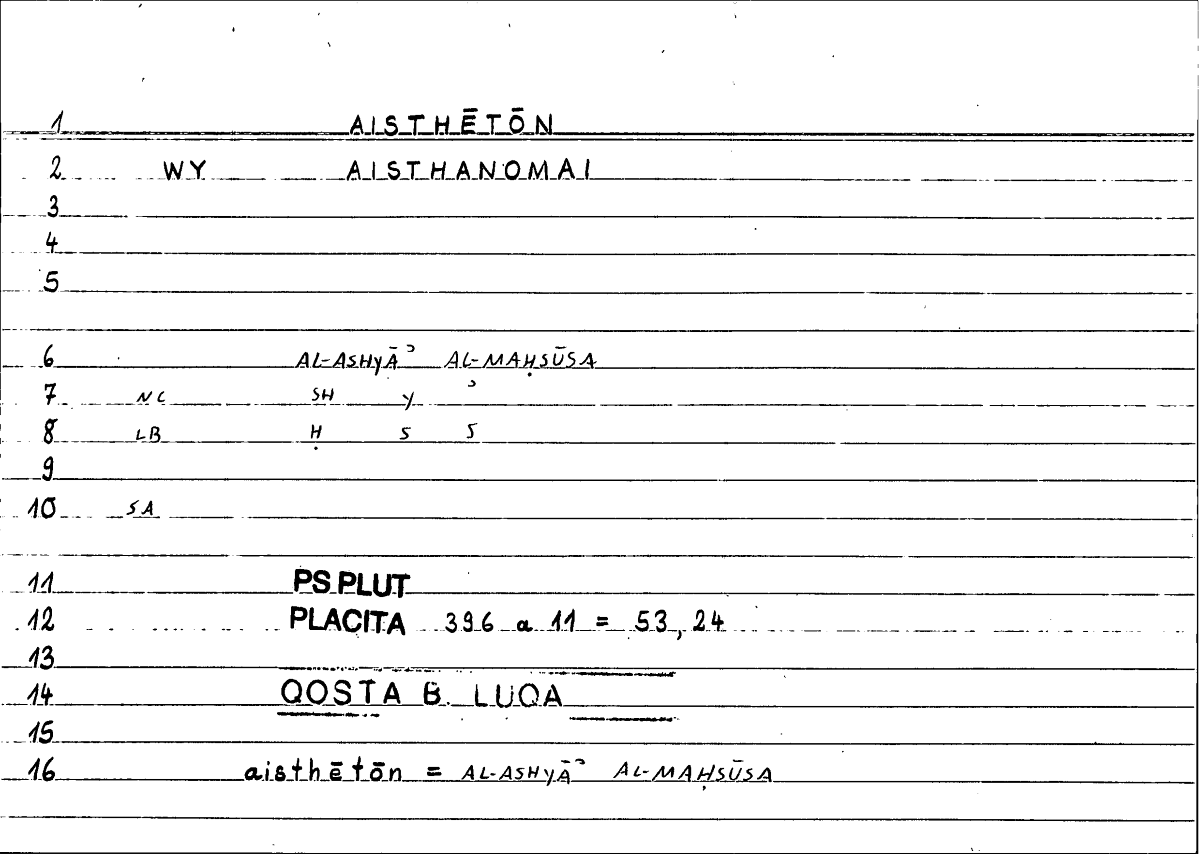 1 AISTHĒTŌN
2 WY AISTHANOMAI
3
4
5
6 AL-ASHYĀʾ AL-MAḤSŪSA
7 NC SH Y ʾ
8 LB Ḥ S S
9
10 SA
11 PS.PLUT
12 PLACITA 396 a 11 = 53,24
13
14 QOSTA B. LUQA
15
16 aisthētōn = AL-ASHYĀʾ AL-MAḤSŪSA